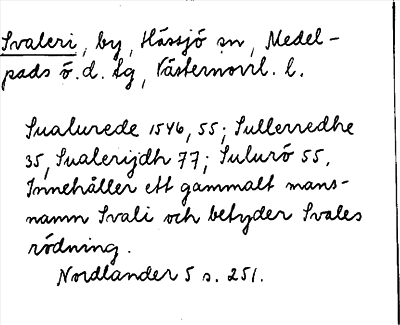 Svaleri, by, Hässjö sn, Medel-
pads ö.d. lg, Västernorrl. l.
Sualurede 1546, 55; Sullerredhe
35, Sualerijdh 77; Sulurö 55.
Innehåller ett gammalt mans-
namn Svali och betyder Svales
rödning.
Nordlander 5 s. 251.